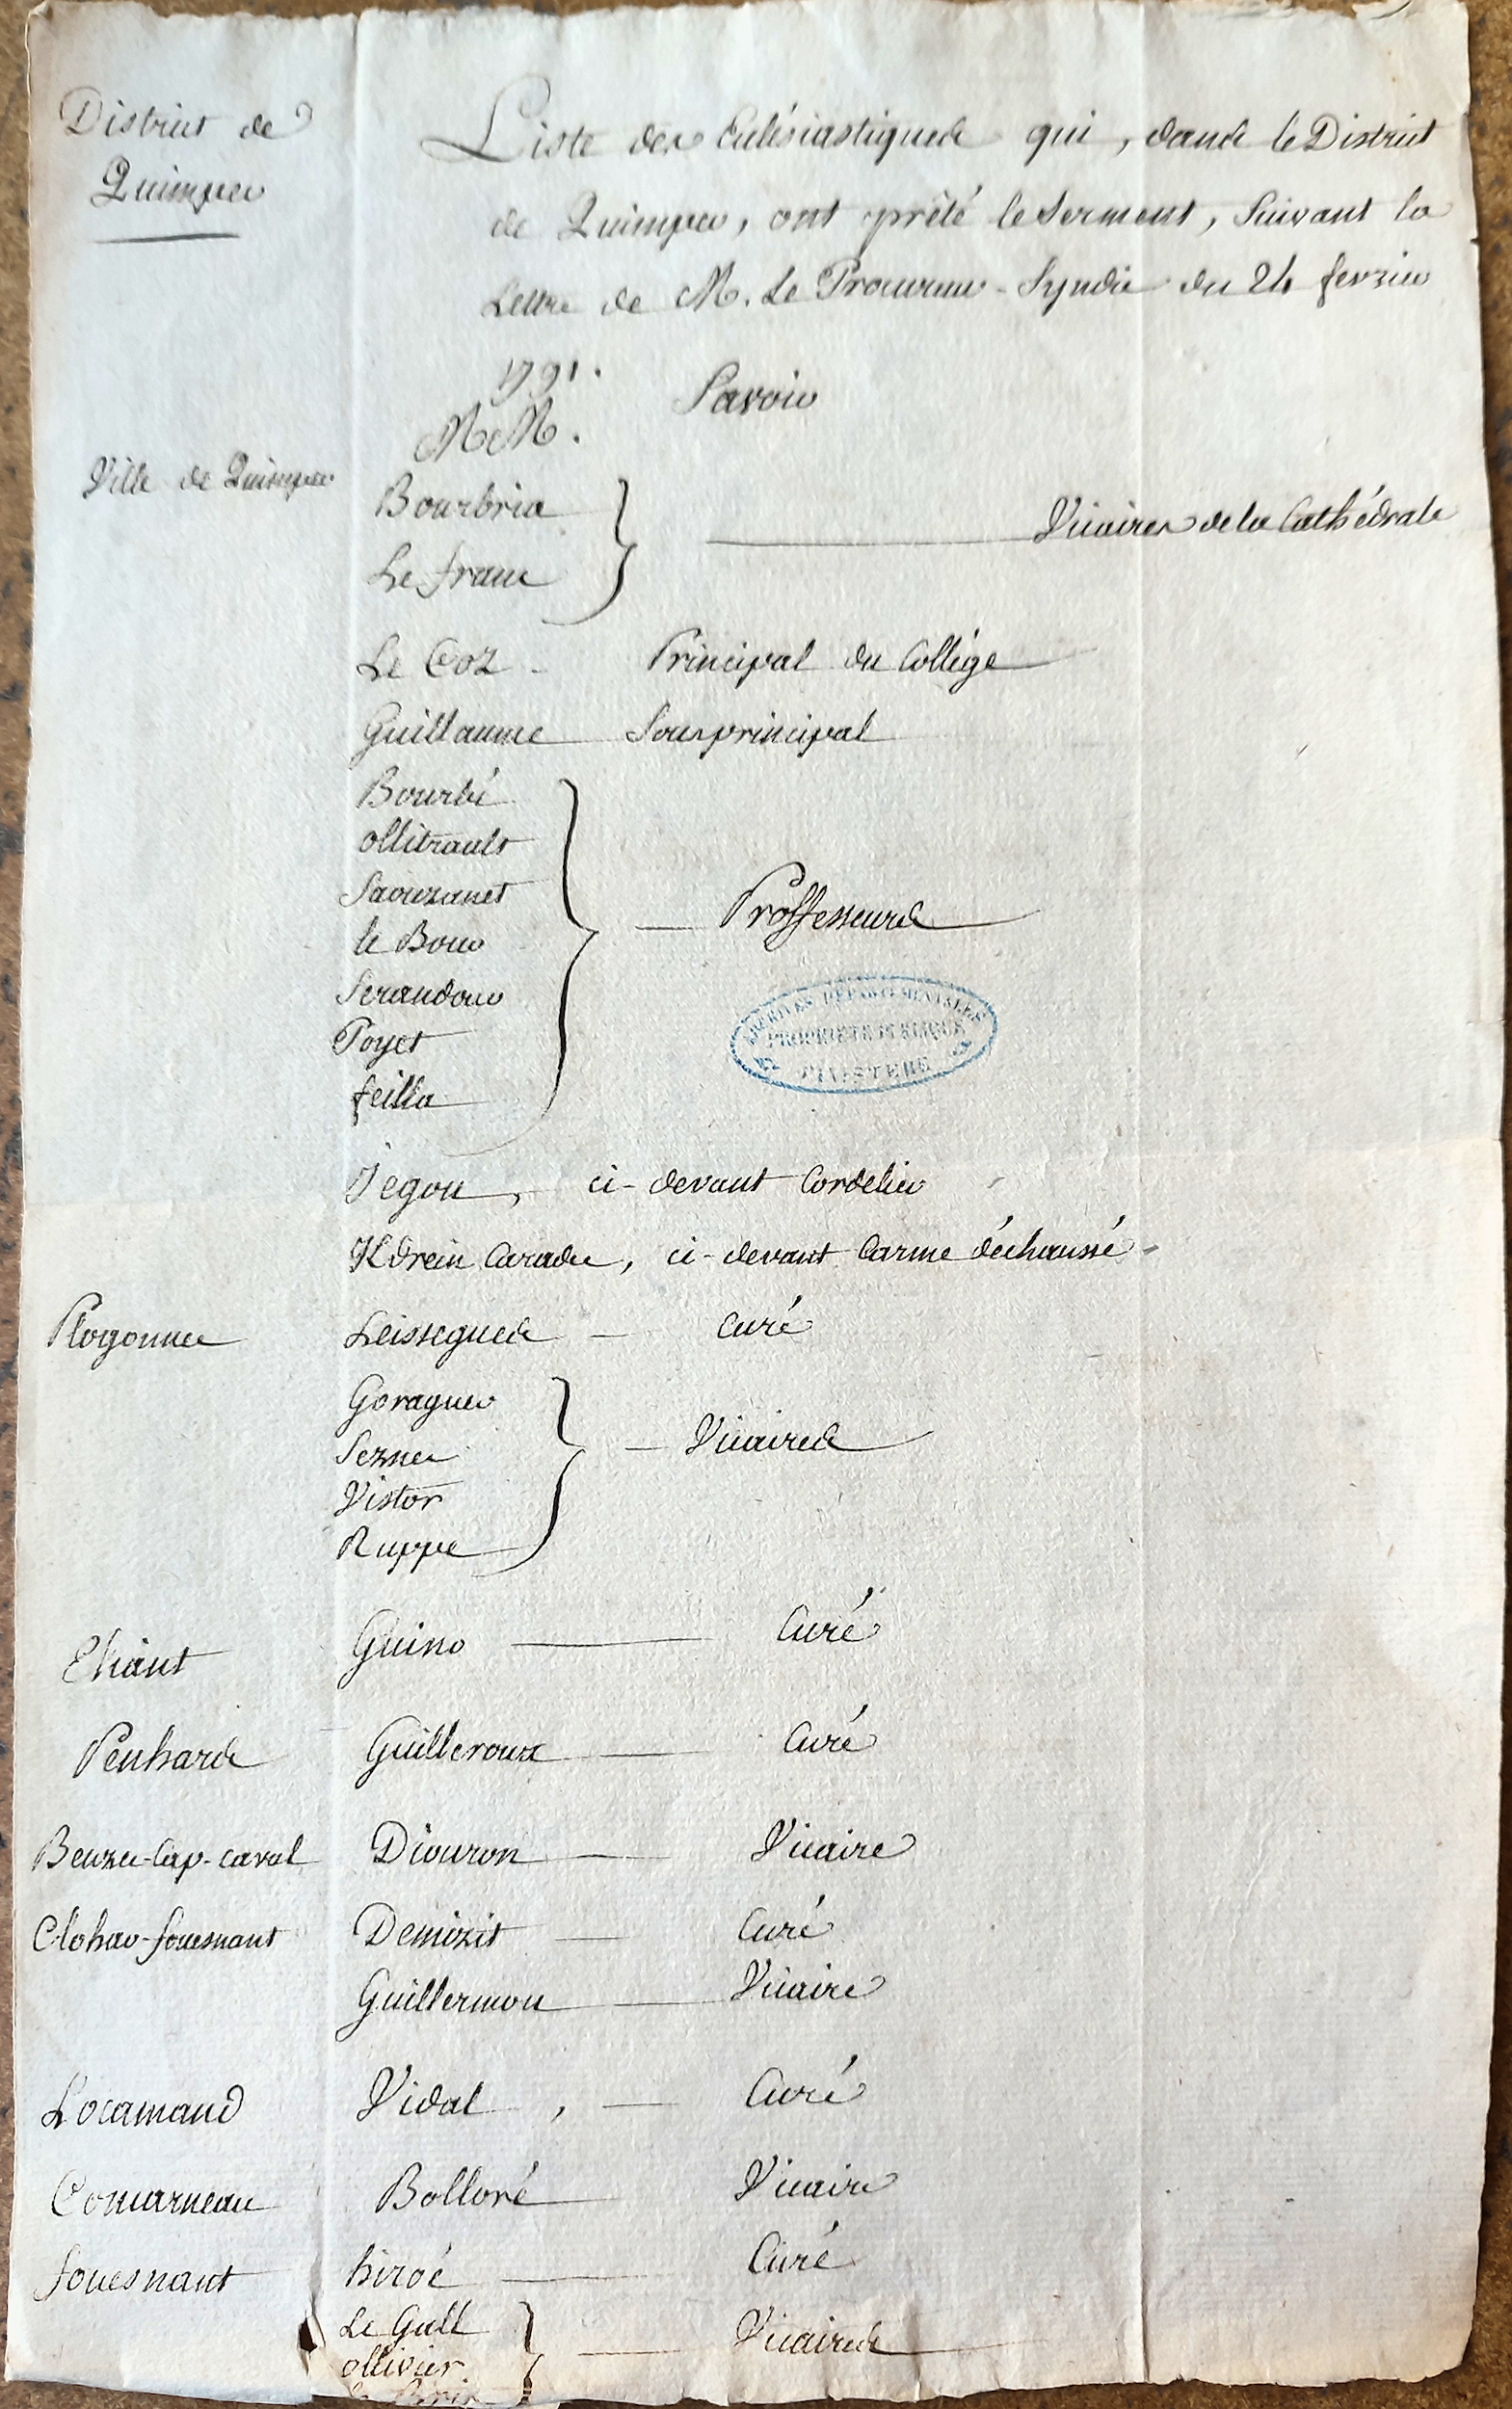 District de
Quimper
Liste des Eclésiastiques qui, dans le District
de Quimper, ont prêté le serment, suivant la
Lettre de M. Le Procureur-Syndic du 24 fevrier
1791. Savoir
MM.
Ville de Quimper
Bourbria
Le franc
Vicaires de la Cathédrale
Le Coz - Principal du Collége
Guillaume Sousprincipal
Bourbé
ollitrault
Saouzanet
le Bour
Serandour
Poyet
feilla
Proffesseurs
ARCHIVES DÉPARTEMENTALES
PROPRIÉTÉ PUBLIQUE
FINISTÈRE
Jégou, ci-devant Cordelier
Kdrein Caradec, ci-devant Carme déchaussé
Plogonnec Leissegues - Curé
Goraguer
Seznec
Vistor
Ruppe
Vicaires
Eliant Guino Curé
Penhars Guilleroux Curé
Beuzec-Cap-caval Diouron Vicaire
Clohar-fouesnant Demizit Curé
Guillermou Vicaire
Locamand Vidal, Curé
Concarneau Bolloré Vicaire
fouesnant hiroé Curé
Le Gall
ollivier
Vicaires